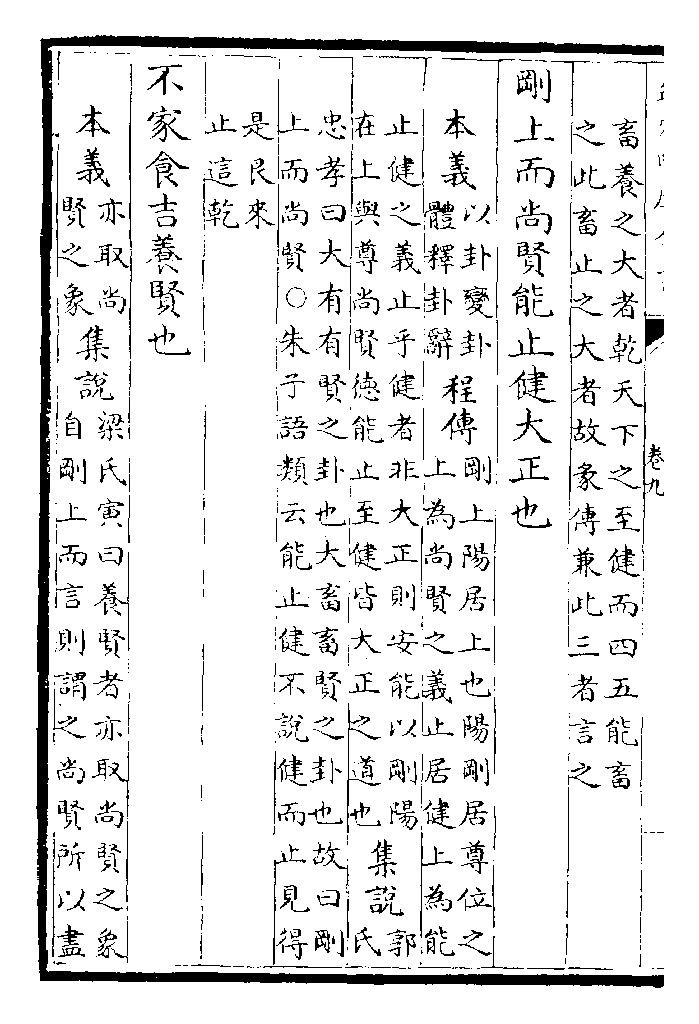 卷九
畜養之大者乾天下之至健而四五能畜
之此畜止之大者故彖傳兼此三者言之
剛上而尚賢能止健大正也
本義
以卦變卦
體釋卦辭
程傳
剛上陽居上也陽剛居尊位之
上為尚賢之義止居健上為能
止健之義止乎健者非大正則安能以剛陽
在上與尊尚賢德能止至健皆大正之道也
集說
郭
氏
忠孝曰大有有賢之卦也大畜畜賢之卦也故曰剛
上而尚賢○朱子語類云能止健不說健而止見得
是艮來
止這乾
不家食吉養賢也
本義
亦取尚
賢之象
集說
梁氏寅曰養賢者亦取尚賢之象
自剛上而言則謂之尚賢所以盡